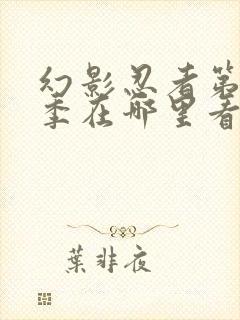 幻影忍者第
季在哪里看
葉非夜